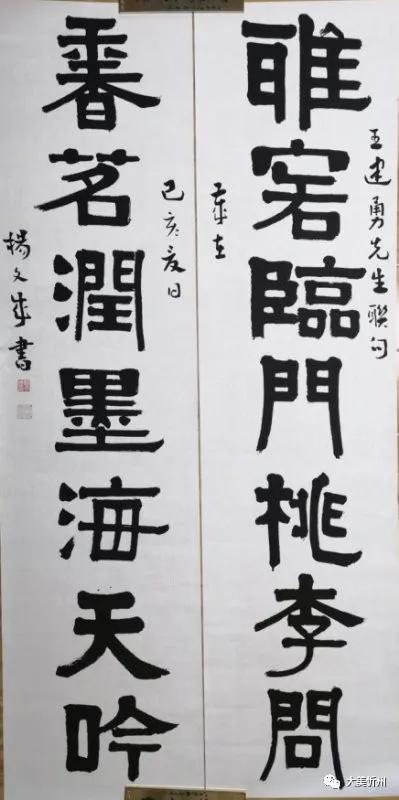 雅客臨門桃李問
王建勇先生聯句
歲在
己亥夏日
香茗潤墨海天吟
楊文成書
大美忻州